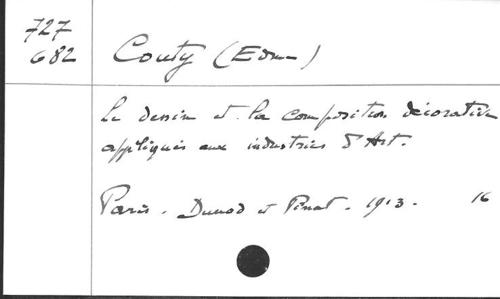 727
682
Couty (Edme)
Le dessin et la composition décorative
appliqués aux industries d'Art.
Paris. Dunod et Pinat. 1913. 16